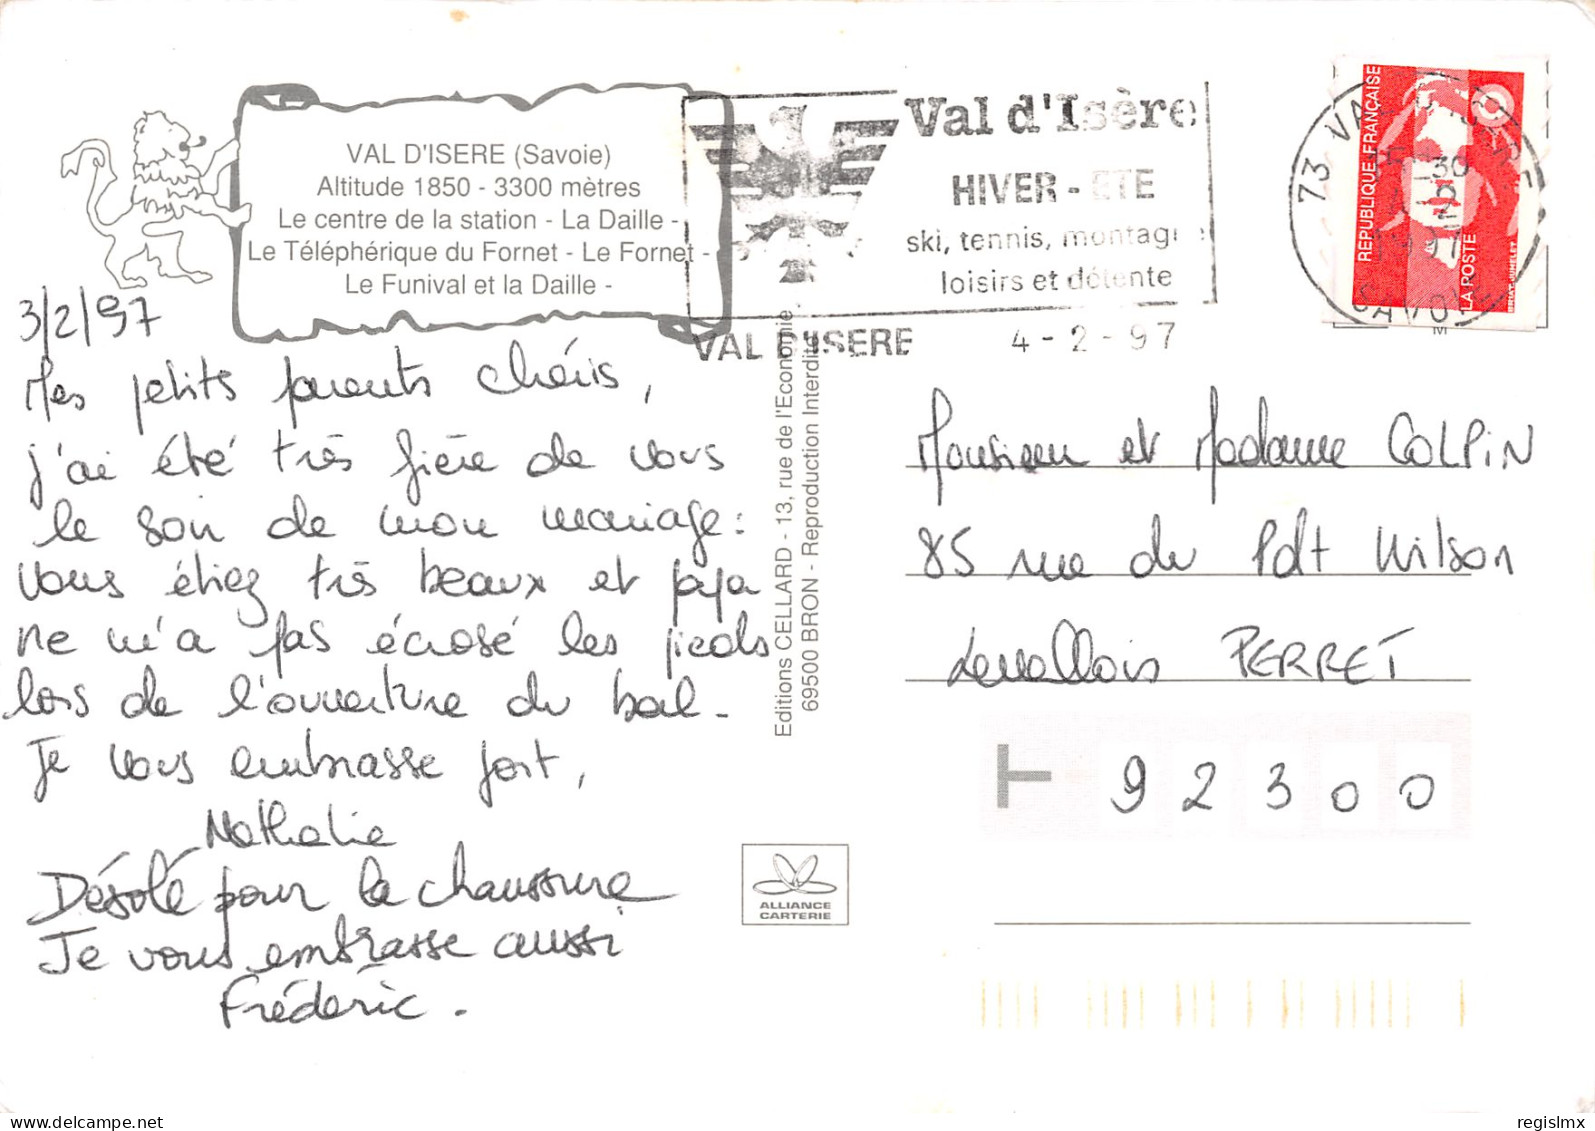 VAL D'ISERE (Savoie)
Altitude 1850 - 3300 mètres
Le centre de la station - La Daille -
Le Téléphérique du Fornet - Le Fornet -
Le Funival et la Daille -
3/2/97
Mes petits parents chéris,
j'ai été très fière de vous
le soir de mon mariage :
vous étiez très beaux et papa
ne m'a pas écrasé les pieds
lors de l'ouverture du bal.
Je vous embrasse fort,
Nathalie
Désolé pour la chaussure
Je vous embrasse aussi
Frédéric.
Editions CELLARD - 13, rue de l'Economie
69500 BRON - Reproduction Interdite
ALLIANCE
CARTERIE
Val d'Isère
HIVER - ETE
ski, tennis, montagne
loisirs et détente
VAL D'ISERE
4 - 2 - 97
REPUBLIQUE FRANÇAISE
LA POSTE
73 VAL
SAVOIE
M
Monsieur et Madame COLPIN
85 rue du Pdt Wilson
Levallois PERRET
92300
delcampe.net
regislmx